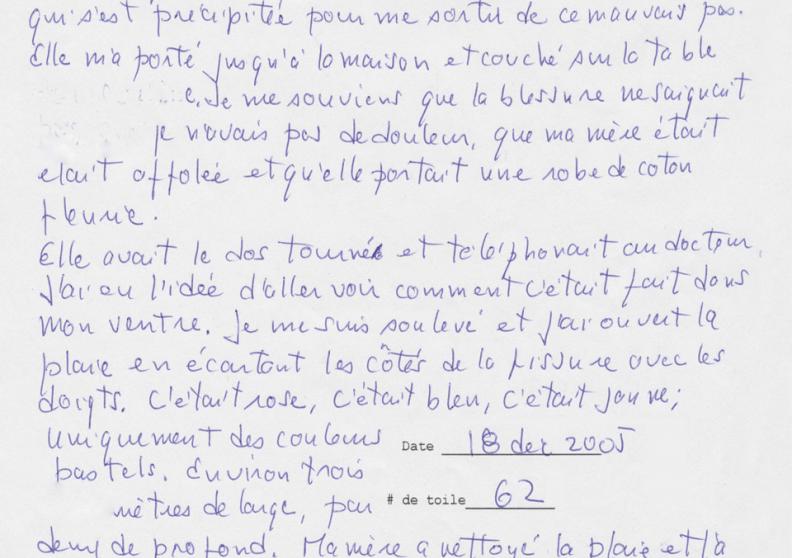 qui s'est précipitée pour me sortir de ce mauvais pas.
Elle m'a porté jusqu'à la maison et couché sur la table
e. Je me souviens que la blessure ne saignait
je n'avais pas de douleur, que ma mère était
etait affolée et qu'elle portait une robe de coton
fleurie.
Elle avait le dos tourné et téléphonait au docteur.
J'ai eu l'idée d'aller voir comment c'était fait dans
mon ventre. Je me suis soulevé et j'ai ouvert la
plaie en écartant les côtés de la fissure avec les
doigts. C'était rose, c'était bleu, c'était jaune;
uniquement des couleurs
Date 18 dec 2005
pastels. Environ trois
mètres de large, par
# de toile 62
demi de profond. Ma mère a nettoyé la plaie et l'a